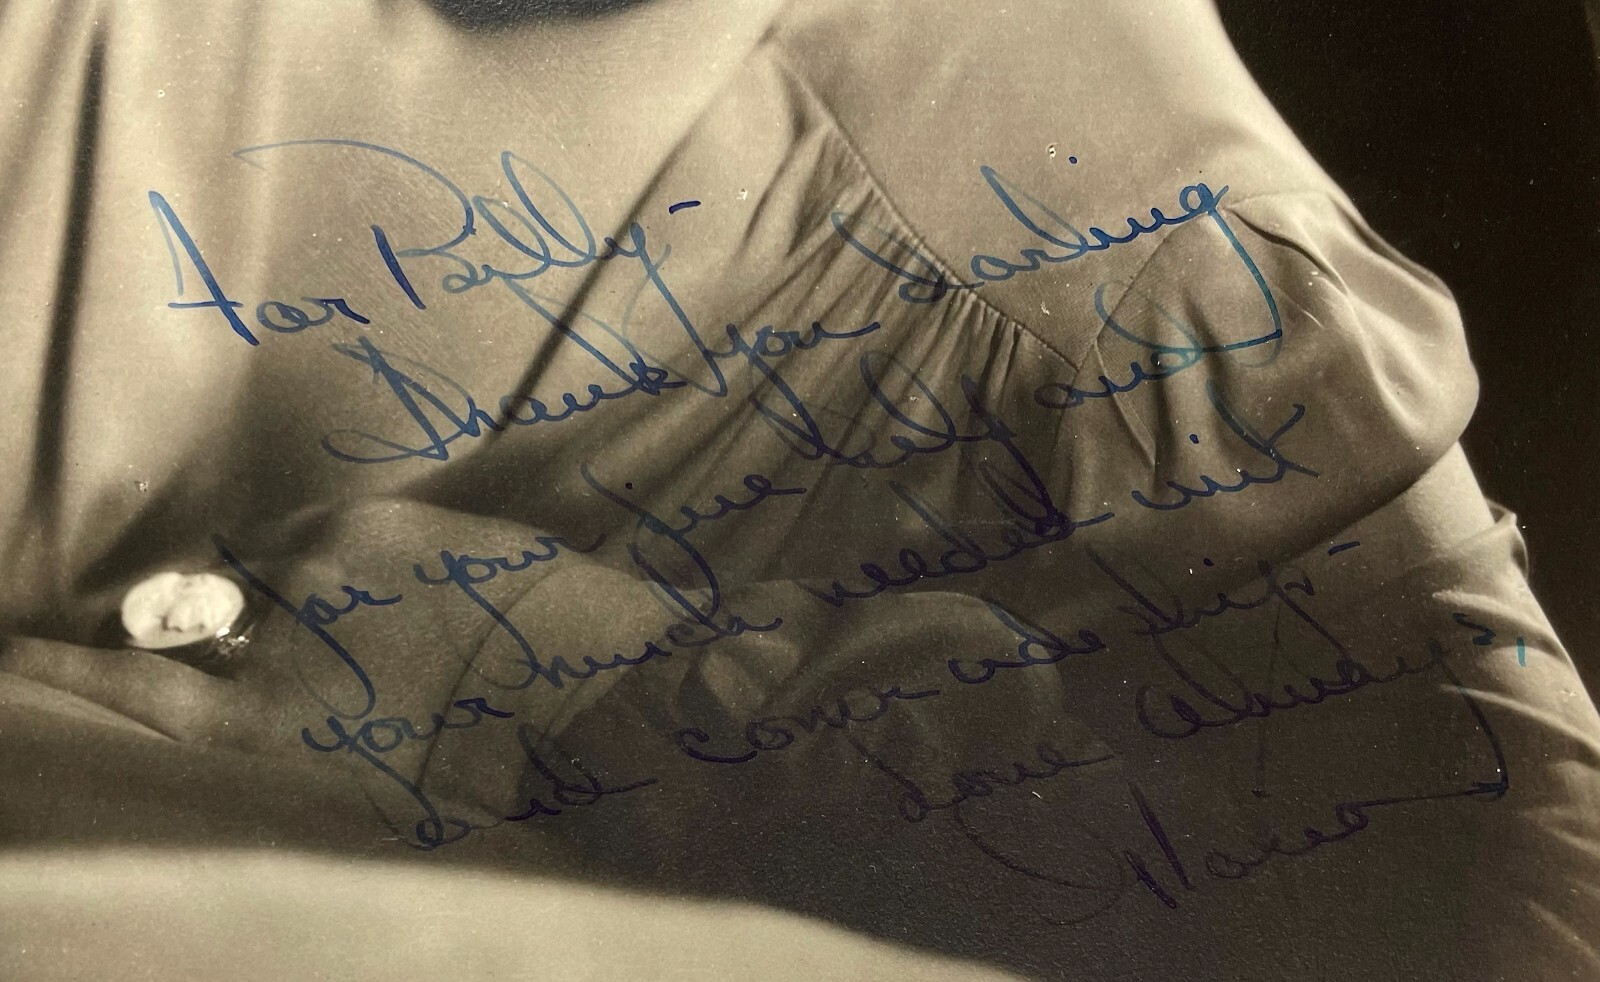 For Billy-
Thank you darling
for your fine self and
your much needed wit
and comradeship-
Love Always,